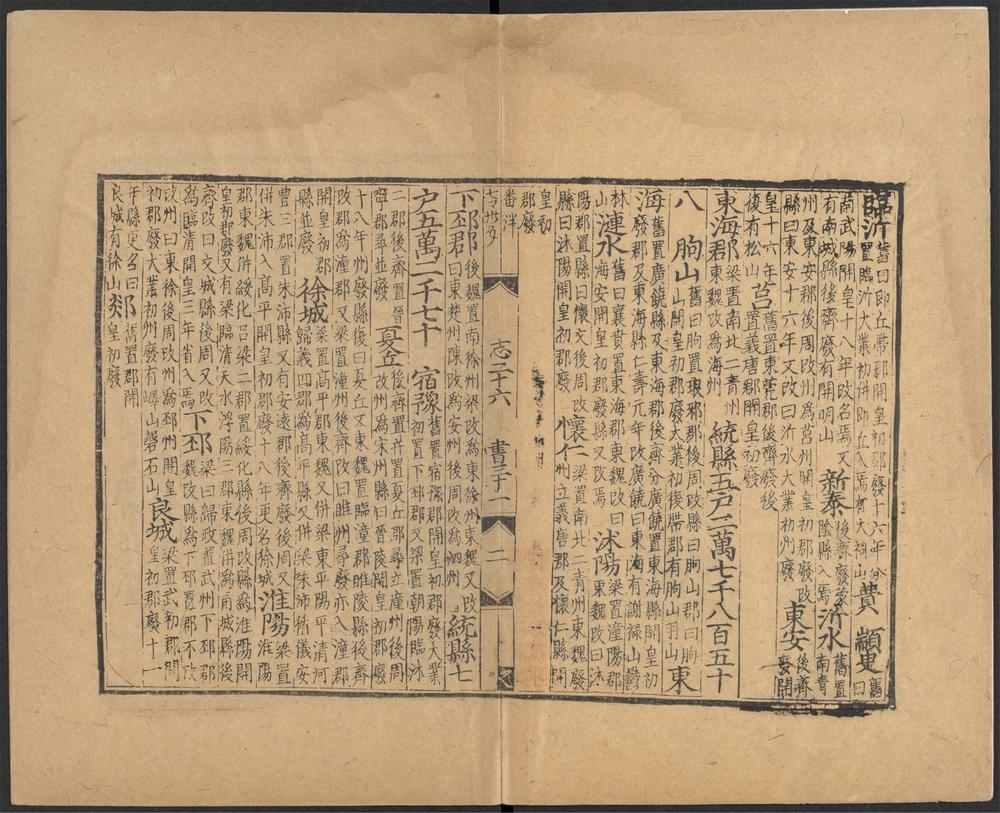 臨沂 舊曰即丘帶郡開皇初郡廢十六年分
置臨沂大業初併即丘入焉有大祠山 費 顓臾 舊
曰
南武陽開皇十八年改名焉又
有南城縣後齊廢有開明山 新泰 後齊廢蒙
陰縣入焉 沂水 舊置
南青
州及東安郡後周改州爲莒州開皇初郡廢改
縣曰東安十六年又改曰沂水大業初州廢 東安 後齊
廢開
皇十六年
復有松山 莒 舊置東莞郡後齊廢後
置義唐郡開皇初廢
東海郡 梁置南北二青州
東魏改爲海州 統縣五戶二萬七千八百五十
八 朐山 舊曰朐置琅邪郡後周改縣曰朐山郡曰朐
山開皇初郡廢大業初復帶郡有朐山羽山 東
海 舊置廣饒縣及東海郡後齊分廣饒置東海縣開皇初
廢郡及東海縣仁壽元年改廣饒曰東海有謝祿山鬱
林
山 漣水 舊曰襄賁置東海郡東魏改曰
海安開皇初郡廢縣又改焉 沭陽 梁置潼陽郡
東魏改曰沭
陽郡置縣曰懷文後周改
縣曰沭陽開皇初郡廢 懷仁 梁置南北二青州東魏廢
州立義唐郡及懷仁縣開
皇初
郡廢
番泮
志二十六 書三十一 二
下邳郡 後魏置南徐州梁改爲東徐州東魏又改
曰東楚州陳改爲安州後周改爲泗州 統縣七
戶五萬二千七十 宿豫 舊置宿豫郡開皇初郡廢大業
初置下邳郡又梁置朝陽臨沭
二郡後齊置晉
寧郡尋並廢 夏丘 後齊置并置夏丘郡尋立潼州後周
改州爲宋州縣曰晉陵開皇初郡廢
十八年州廢縣復曰夏丘又東魏置臨潼郡睢陵縣後齊
改郡爲潼郡又梁置潼州後齊改曰睢州尋廢亦入潼郡
開皇初郡
縣並廢 徐城 梁置高平郡東魏又併梁東平陽平清河
歸義四郡爲高平縣又併梁朱沛循儀安
曹三郡置朱沛縣又有安遠郡後齊廢後周又
併朱沛入高平開皇初郡廢十八年更名徐城 淮陽 梁置
淮陽
郡東魏併綏化呂梁二郡置綏化縣後周改縣爲淮陽開
皇初郡廢又有梁臨清天水浮陽三郡東魏併爲甬城縣後
齊改曰文城縣後周又改
爲臨清開皇三年省入焉 下邳 梁曰歸政置武州下邳郡
魏改縣爲下邳置郡不改
改州曰東徐後周改州爲邳州開皇
初郡廢大業初州廢有嶧山磬石山 良城 梁置武初郡開
皇初郡廢十一
年縣更名曰
良城有徐山 郯 舊置郡開
皇初廢